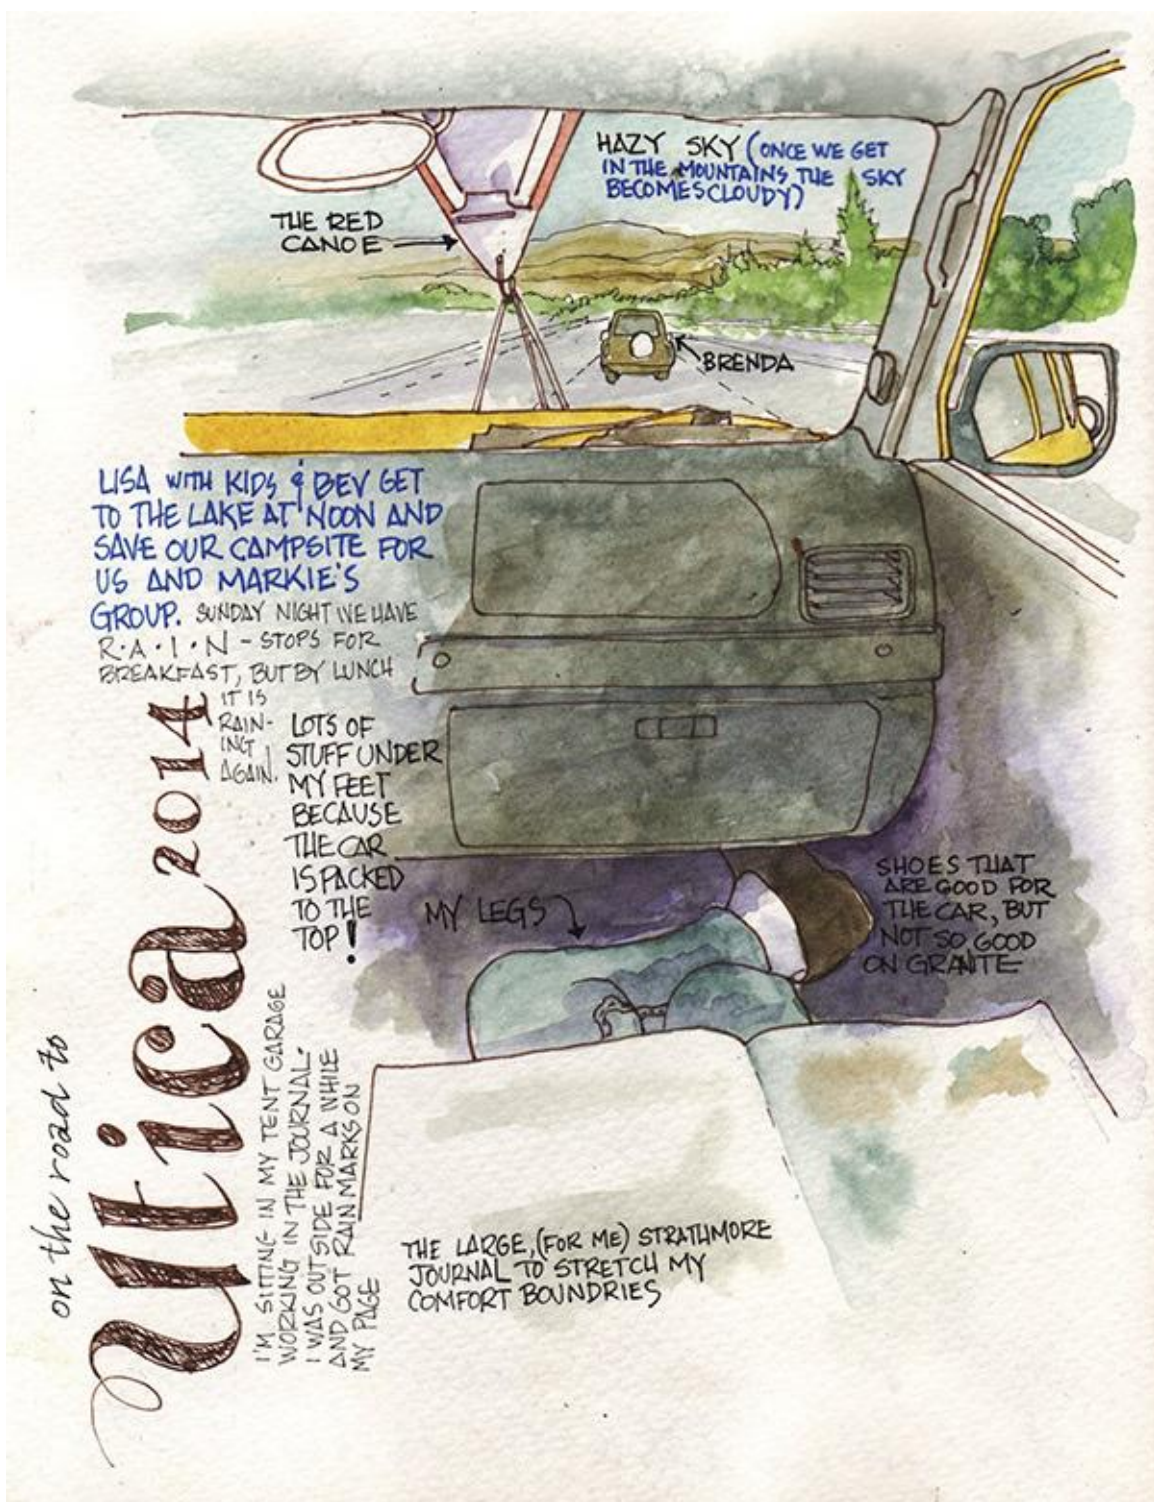 HAZY SKY (ONCE WE GET
IN THE MOUNTAINS THE SKY
BECOMES CLOUDY)
THE RED
CANOE
BRENDA
LISA WITH KIDS & BEV GET
TO THE LAKE AT NOON AND
SAVE OUR CAMPSITE FOR
US AND MARKIE'S
GROUP. SUNDAY NIGHT WE HAVE
R•A•I•N - STOPS FOR
BREAKFAST, BUT BY LUNCH
IT IS
RAIN-
ING
AGAIN.
LOTS OF
STUFF UNDER
MY FEET
BECAUSE
THE CAR
IS PACKED
TO THE
TOP!
MY LEGS
SHOES THAT
ARE GOOD FOR
THE CAR, BUT
NOT SO GOOD
ON GRANITE
on the road to
Utica 2014
I'M SITTING IN MY TENT GARAGE
WORKING IN THE JOURNAL.
I WAS OUTSIDE FOR A WHILE
AND GOT RAIN MARKS ON
MY PAGE
THE LARGE, (FOR ME) STRATHMORE
JOURNAL TO STRETCH MY
COMFORT BOUNDRIES